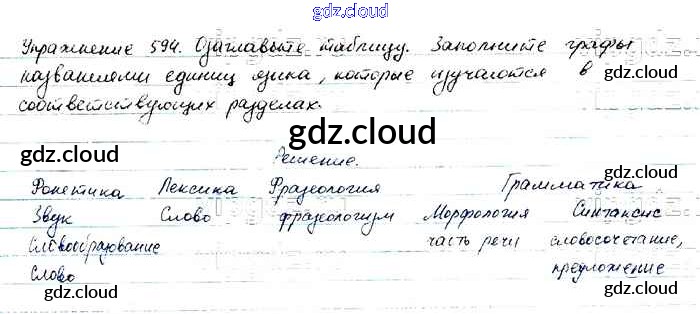 gdz.cloud
Упражнение 594. Озаглавьте таблицу. Заполните графы
gdz.cloud
названиями единиц языка, которые изучаются в
gdz.cloud
соответствующих разделах.
gdz.cloud
gdz.cloud
Решение.
gdz.cloud
Фонетика Лексика Фразеология Грамматика
Звук Слово фразеологизм Морфология Синтаксис
словообразование часть речи словосочетание,
gdz.cloud
Слово предложение
gdz.cloud
gdz.cloud